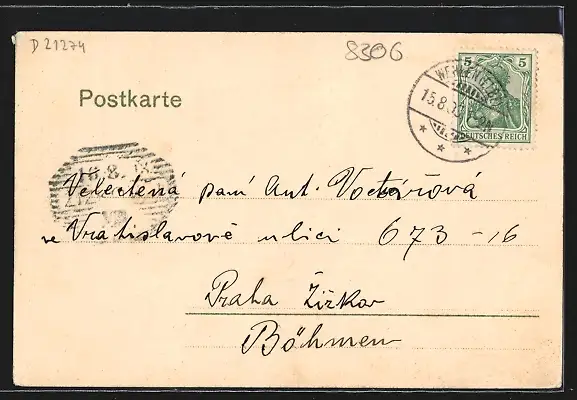 D 21274
8306
Postkarte
5 5
DEUTSCHES REICH
15.8.
Velectená paní Ant. Voctářová
ve Vratislavově ulici 673-16
Praha Žižkov
Böhmen